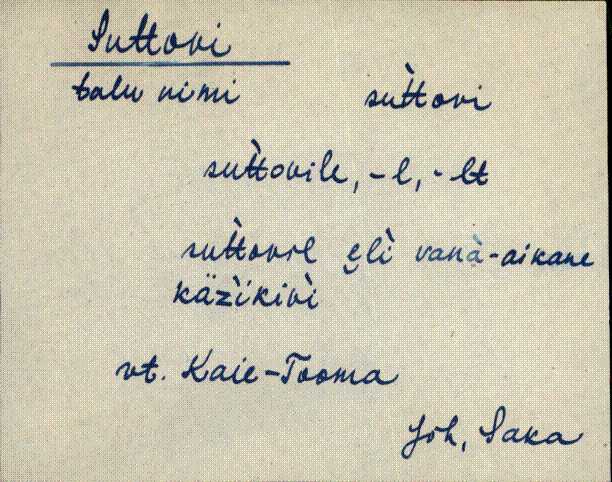 Suttovi
talu nimi sut̀tovi
sut̀tovile, -l, -lt
sut̀tovil ęlì vanà-aikane
käzìkivì
vt. Kaie-Tooma
Joh, Saka